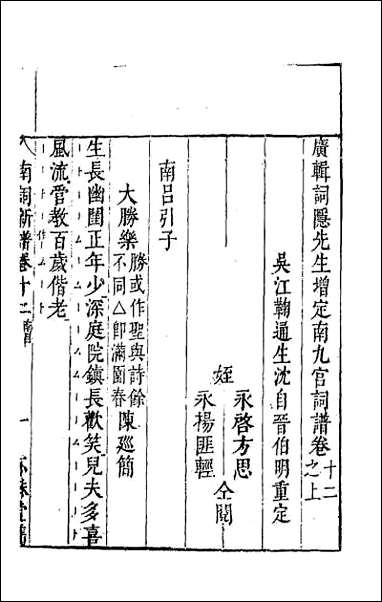 廣輯詞隱先生增定南九宮詞譜卷十二之上
吳江鞠通生沈自晉伯明重定
姪
永啓方思
永楊匪輕
仝閱
南呂引子
大勝樂勝或作聖與詩餘不同△卽滿園春陳巡簡
生長幽閨正年少深庭院鎮長歡笑兒夫多喜
風流管教百歲偕老
南詞新譜卷十二
一